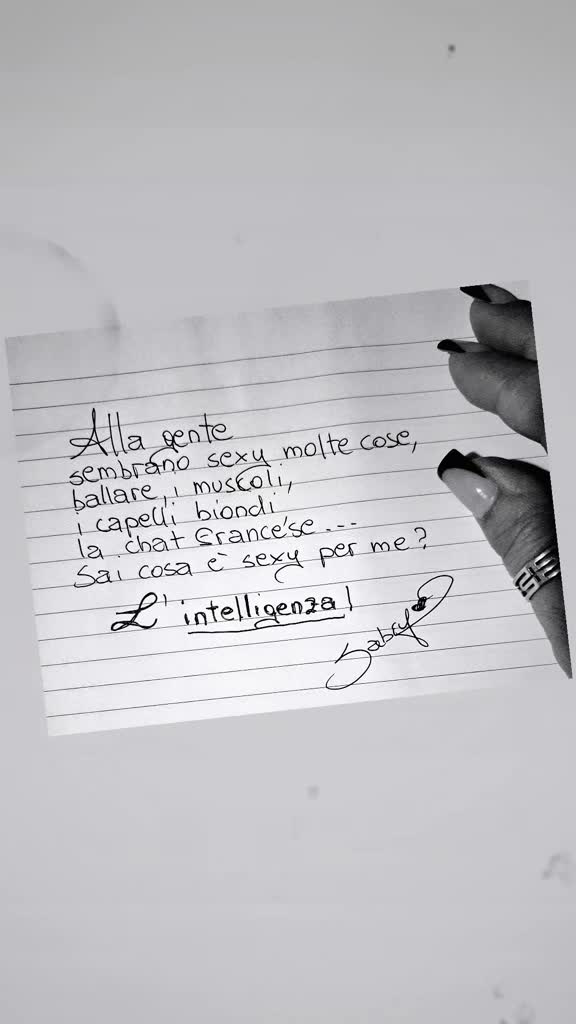 Alla gente
sembrano sexy molte cose,
ballare, i muscoli,
i capelli biondi
la chat francese...
Sai cosa è sexy per me?
L'intelligenza!
Sabry